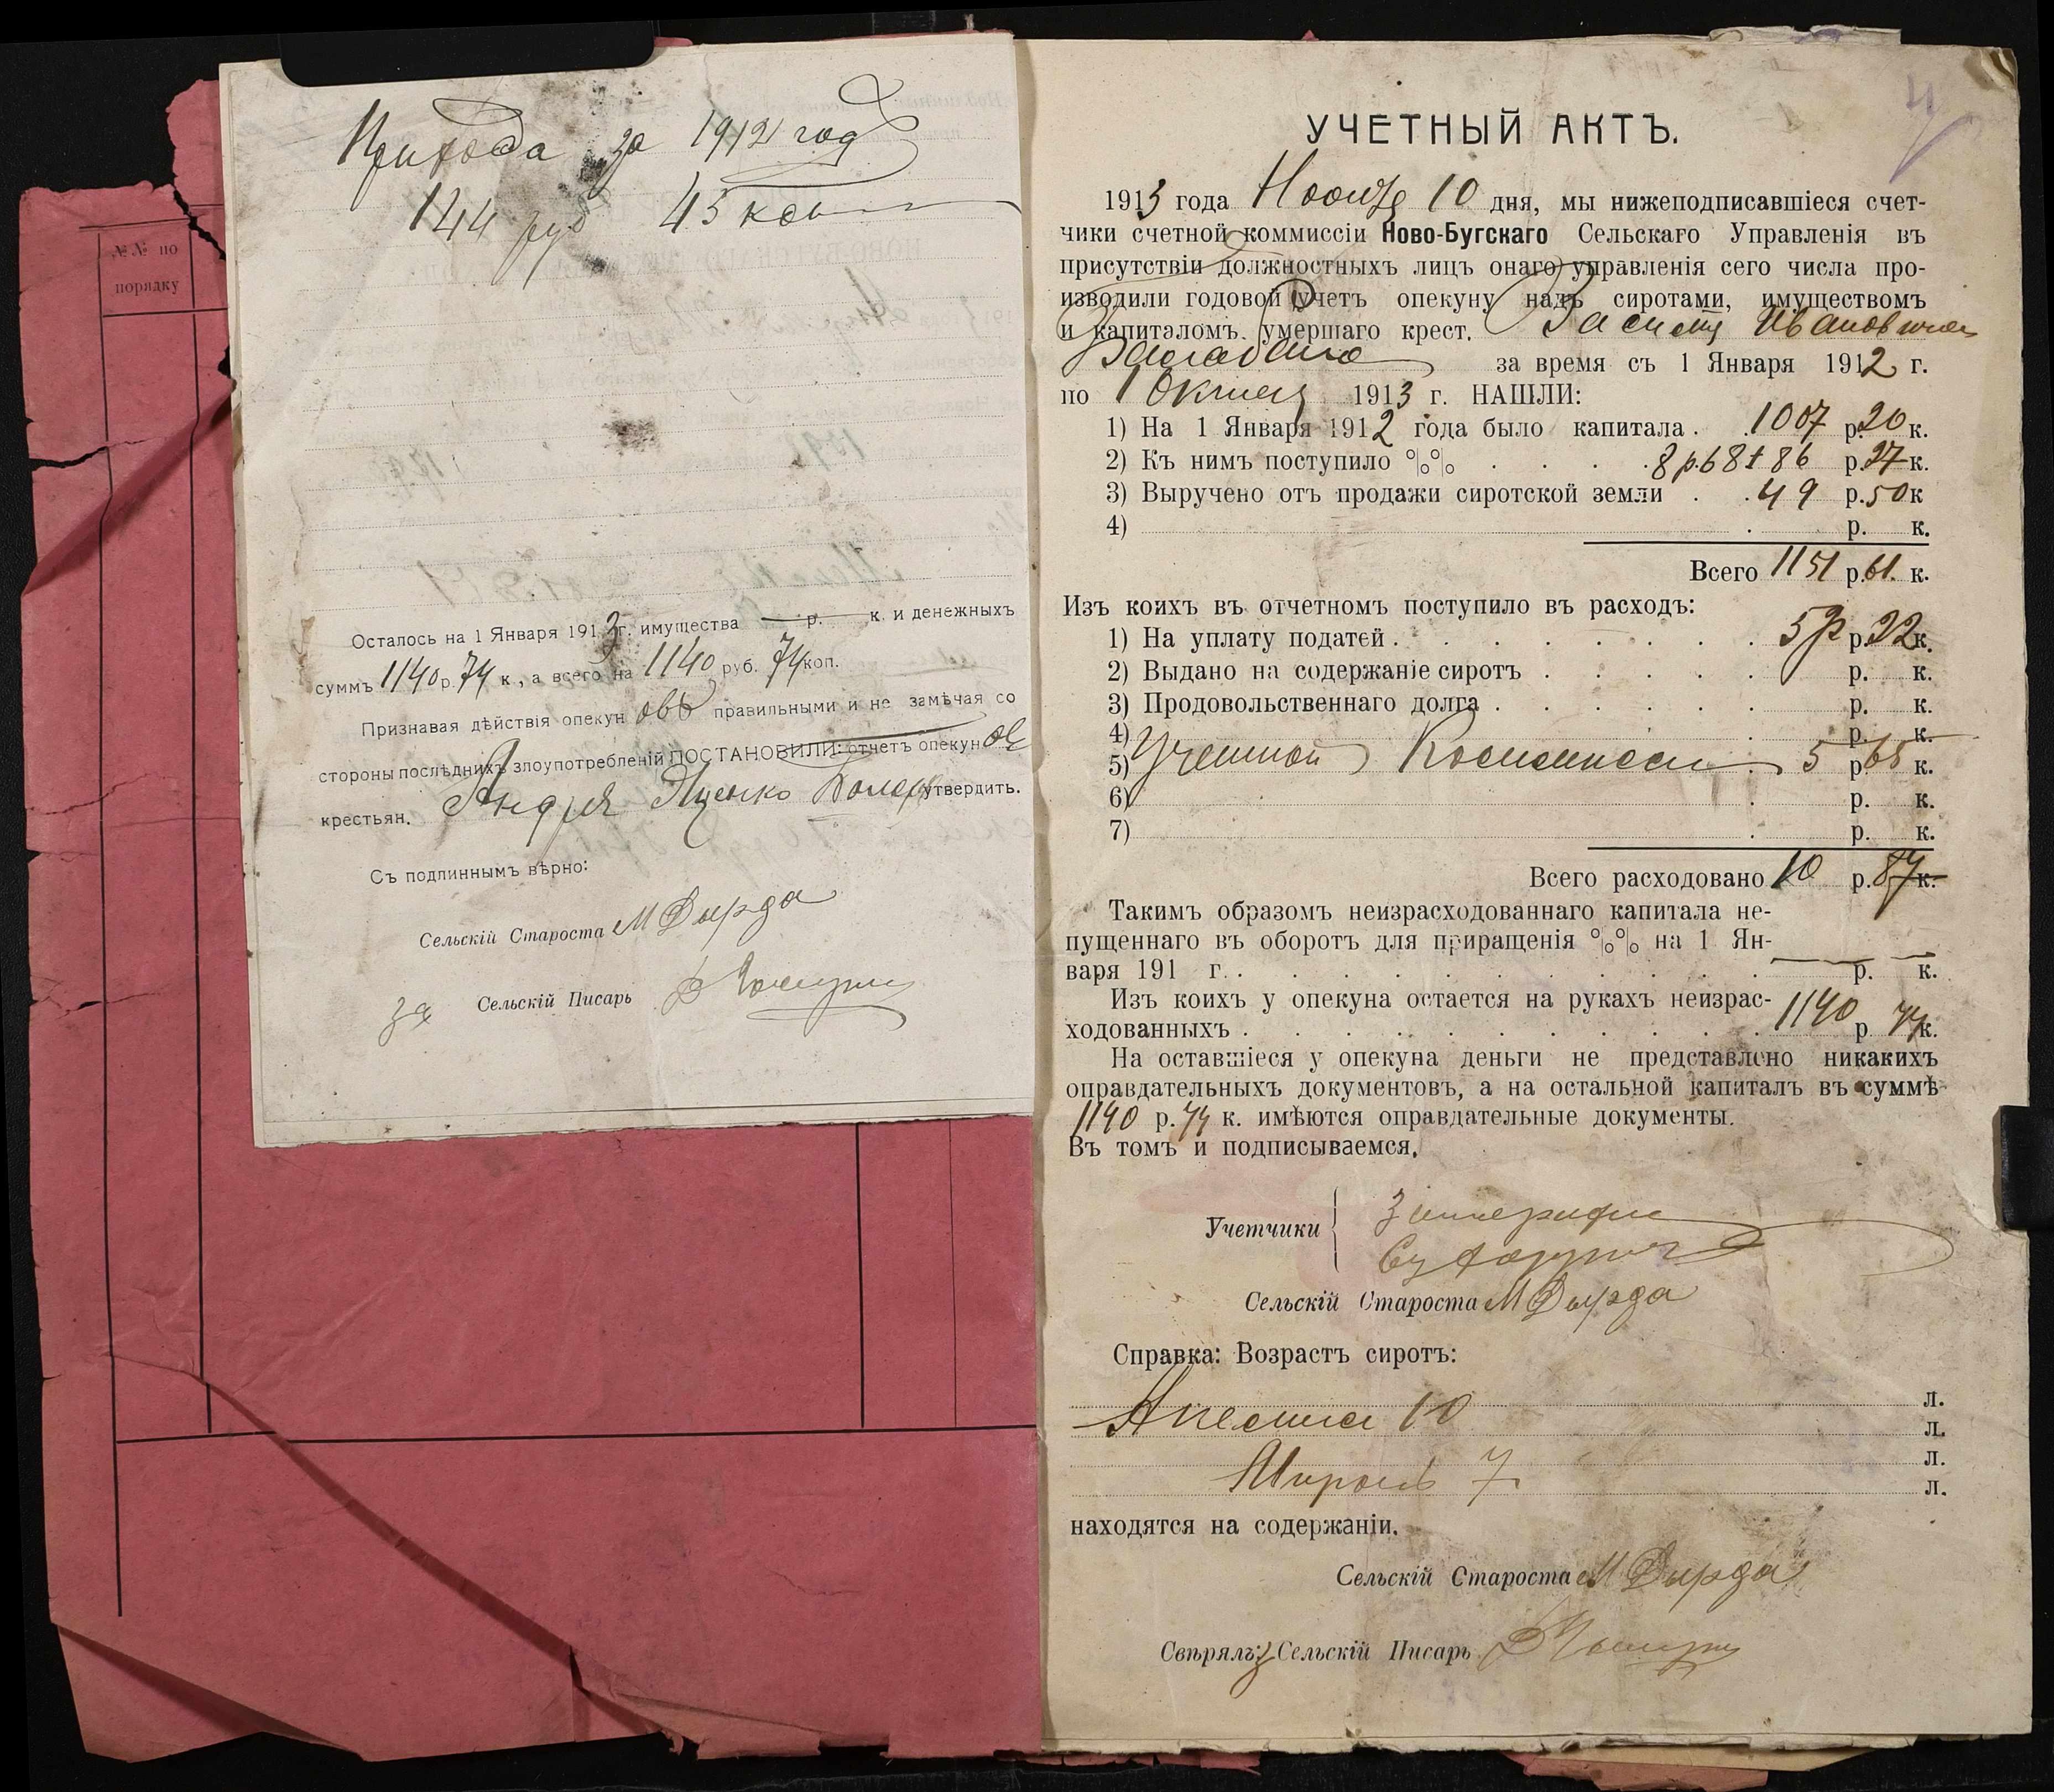 №№ по
порядку
Прихода за 1912 годъ
144 руб 45 коп
Осталось на 1 Января 1913 г. имущества — р. — к. и денежныхъ
суммъ 1140 р. 74 к., а всего на 1140 руб. 74 коп.
Признавая дѣйствія опекуновъ правильными и не замѣчая со
стороны послѣднихъ злоупотребленій ПОСТАНОВИЛИ: отчетъ опекун
крестьян. Андрея Яценко утвердить.
Съ подлиннымъ вѣрно:
Сельскій Староста М Дырда
за Сельскій Писарь
4
УЧЕТНЫЙ АКТЪ.
1913 года Ноября 10 дня, мы нижеподписавшіеся счет-
чики счетной коммиссіи Ново-Бугскаго Сельскаго Управленія въ
присутствіи должностныхъ лицъ онаго управленія сего числа про-
изводили годовой учетъ опекуну надъ сиротами, имуществомъ
и капиталомъ умершаго крест. Ивановича
за время съ 1 Января 1912 г.
по 1 Октября 1913 г. НАШЛИ:
1) На 1 Января 1912 года было капитала . . 1007 р. 20 к.
2) Къ нимъ поступило %% . . . . 8 р. 68 + 86 р. 27 к.
3) Выручено отъ продажи сиротской земли . . 49 р. 50 к
4) . р. к.
Всего 1151 р. 61. к.
Изъ коихъ въ отчетномъ поступило въ расходъ:
1) На уплату податей . . . . . . . . 5 р р. 22 к.
2) Выдано на содержаніе сиротъ . . . . . р. к.
3) Продовольственнаго долга . . . . . . р. к.
4) . р. к.
5) Учетной Коммисіи . 5 р. 65 к.
6) . р. к.
7) . р. к.
Всего расходовано 10 р. 87 к.
Такимъ образомъ неизрасходованнаго капитала не-
пущеннаго въ оборотъ для приращенія %% на 1 Ян-
варя 191 г. . . . . . . . . . . . — р. — к.
Изъ коихъ у опекуна остается на рукахъ неизрас-
ходованныхъ . . . . . . . . . . . 1140 р 74 к.
На оставшіеся у опекуна деньги не представлено никакихъ
оправдательныхъ документовъ, а на остальной капиталъ въ суммѣ
1140 р. 74 к. имѣются оправдательные документы.
Въ томъ и подписываемся.
Учетчики
Сельскій Староста М Дырда
Справка: Возрастъ сиротъ:
л.
10 л.
л.
Миронъ 7 л.
находятся на содержаніи.
Сельскій Староста М Дырда
Свѣрялъ: з Сельскій Писарь